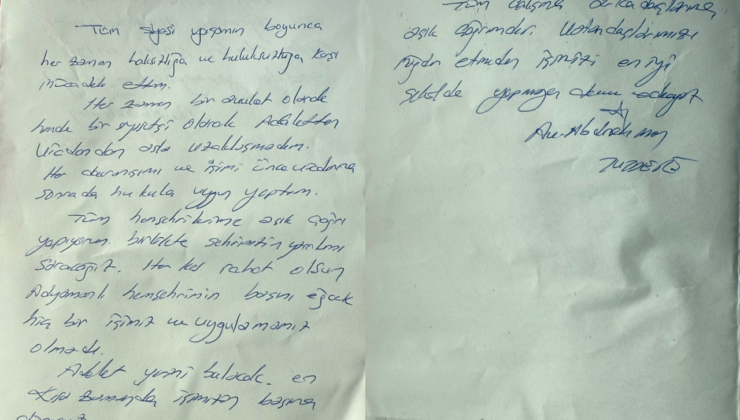 Tüm siyasi yaşamım boyunca
her zaman haksızlığa ve hukuksuzluğa karşı
mücadele ettim.
Her zaman bir avukat olarak
hemde bir siyasetçi olarak Adaletten
vicdandan asla uzaklaşmadım.
Her davranışımı ve işimi önce vicdanıma
sonrada hukuka uygun yaptım.
Tüm hemşehrilerime açık çağrı
yapıyorum. birlikte şehrimizin yaralarını
saracağız. Herkes rahat olsun
Adıyamanlı hemşehrimin başını eğecek
hiç bir işimiz ve uygulamamız
olmadı.
Adalet yerini bulacak. en
kısa zamanda işimizin başına
Tüm çalışma arkadaşlarıma
açık çağrımdır. Vatandaşlarımızı
mağdur etmeden işinizi en iyi
şekilde yapmaya devam
Av. Abdurrahman
TUTDERE